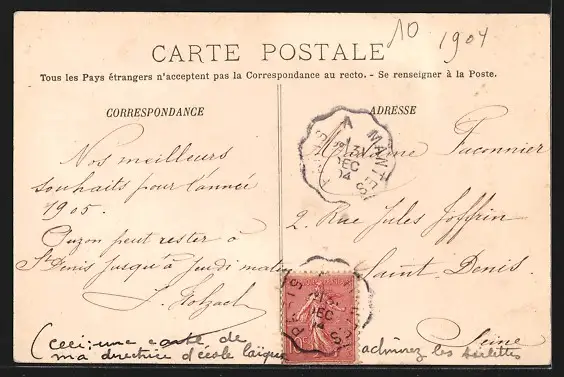 10
1904
CARTE POSTALE
Tous les Pays étrangers n'acceptent pas la Correspondance au recto. - Se renseigner à la Poste.
CORRESPONDANCE
Nos meilleurs
souhaits pour l'année
1905.
Suzon peut rester à
St Denis jusqu'à Jeudi matin
J. Holzach
ADRESSE
Madame Fuconnier
2. Rue Jules Joffrin
Saint Denis.
Seine
PARIS A MANTES
31
DEC
04
(ceci: une carte de
ma directrice d'école laïque
admirez les